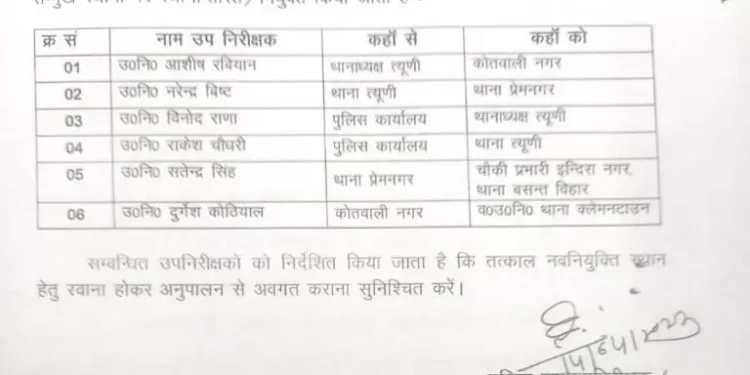 क्र सं नाम उप निरीक्षक कहाँ से कहाँ को
01 उ0नि0 आशीष रवियान थानाध्यक्ष त्यूणी कोतवाली नगर
02 उ0नि0 नरेन्द्र बिष्ट थाना त्यूणी थाना प्रेमनगर
03 उ0नि0 विनोद राणा पुलिस कार्यालय थानाध्यक्ष त्यूणी
04 उ0नि0 राकेश चौधरी पुलिस कार्यालय थाना त्यूणी
05 उ0नि0 सतेन्द्र सिंह थाना प्रेमनगर चौकी प्रभारी इन्दिरा नगर,
थाना बसन्त विहार
06 उ0नि0 दुर्गेश कोठियाल कोतवाली नगर व0उ0नि0 थाना क्लेमनटाउन
सम्बन्धित उपनिरीक्षकों को निर्देशित किया जाता है कि तत्काल नवनियुक्ति स्थान
हेतु रवाना होकर अनुपालन से अवगत कराना सुनिश्चित करें।